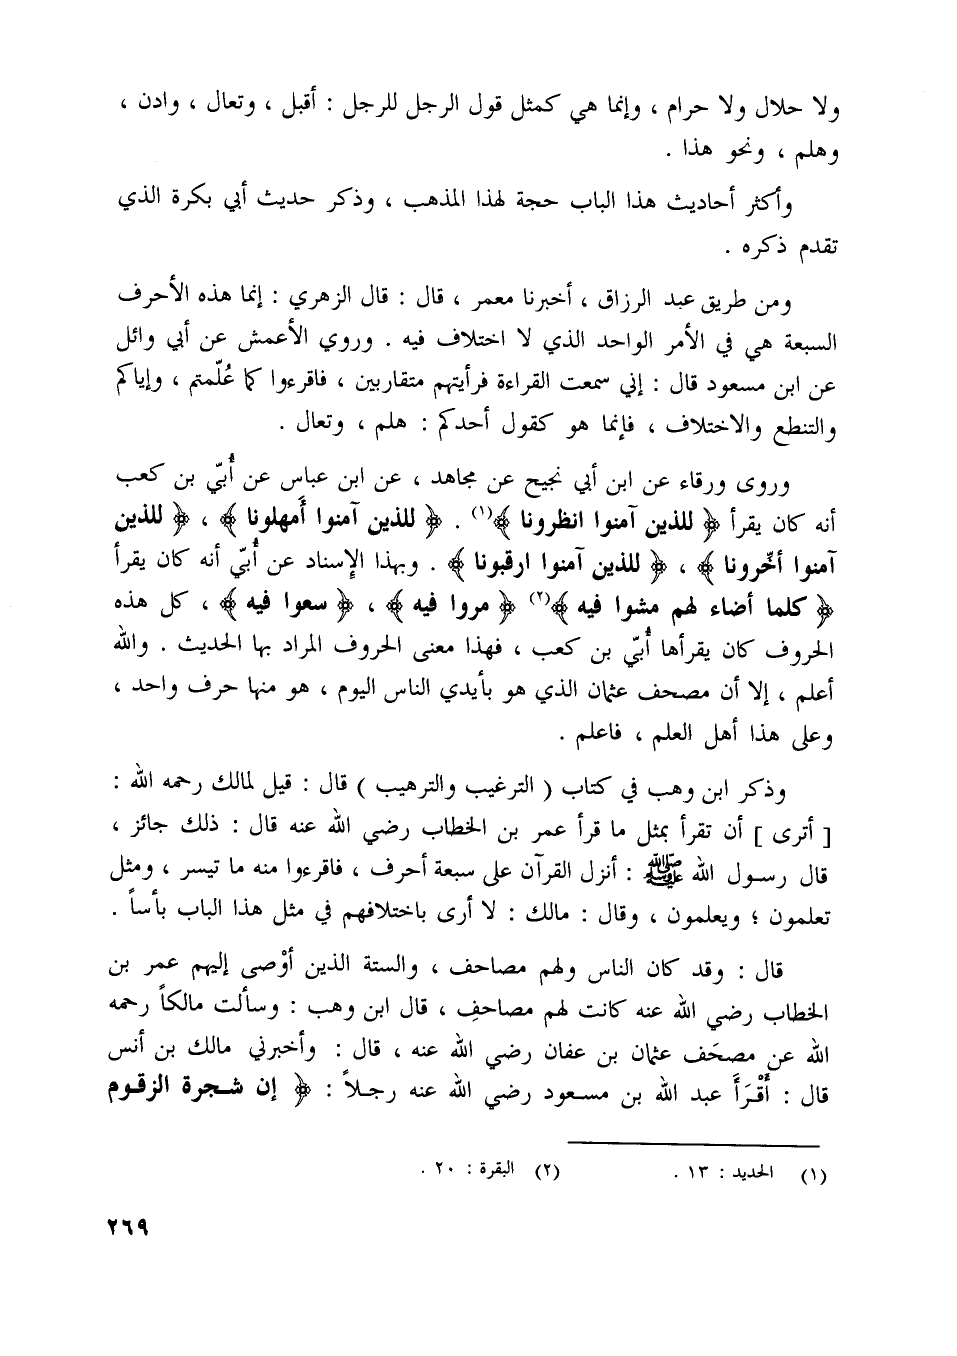 ولا حلال ولا حرام ، وإنما هي كمثل قول الرجل للرجل : أقبل ، وتعال ، وادن ،
وهلم ، ونحو هذا .
وأكثر أحاديث هذا الباب حجة لهذا المذهب ، وذكر حديث أبي بكرة الذي
تقدم ذكره .
ومن طريق عبد الرزاق ، أخبرنا معمر ، قال : قال الزهري : إنما هذه الأحرف
السبعة هي في الأمر الواحد الذي لا اختلاف فيه . وروي الأعمش عن أبي وائل
عن ابن مسعود قال : إني سمعت القراءة فرأيتهم متقاربين ، فاقرءوا كما عُلّمتم ، وإياكم
والتنطع والاختلاف ، فإنما هو كقول أحدكم : هلم ، وتعال .
وروى ورقاء عن ابن أبي نجيح عن مجاهد ، عن ابن عباس عن أُبيّ بن كعب
أنه كان يقرأ ﴿ للذين آمنوا انظرونا ﴾(١) . ﴿ للذين آمنوا أَمهلونا ﴾ ، ﴿ للذين
آمنوا أخّرونا ﴾ ، ﴿ للذين آمنوا ارقبونا ﴾ . وبهذا الإسناد عن أُبيّ أنه كان يقرأ
﴿ كلما أضاء لهم مشوا فيه ﴾(٢) ﴿ مروا فيه ﴾ ، ﴿ سعوا فيه ﴾ ، كل هذه
الحروف كان يقرأها أُبيّ بن كعب ، فهذا معنى الحروف المراد بها الحديث . والله
أعلم ، إلا أن مصحف عثمان الذي هو بأيدي الناس اليوم ، هو منها حرف واحد ،
وعلى هذا أهل العلم ، فاعلم .
وذكر ابن وهب في كتاب ( الترغيب والترهيب ) قال : قيل لمالك رحمه الله :
[ أترى ] أن تقرأ بمثل ما قرأ عمر بن الخطاب رضي الله عنه قال : ذلك جائز ،
قال رسول الله ﷺ : أنزل القرآن على سبعة أحرف ، فاقرءوا منه ما تيسر ، ومثل
تعلمون ؛ ويعلمون ، وقال : مالك : لا أرى باختلافهم في مثل هذا الباب بأساً .
قال : وقد كان الناس ولهم مصاحف ، والستة الذين أوْصى إليهم عمر بن
الخطاب رضي الله عنه كانت لهم مصاحف ، قال ابن وهب : وسألت مالكاً رحمه
الله عن مصحَف عثمان بن عفان رضي الله عنه ، قال : وأخبرني مالك بن أنس
قال : أَقْرَأَ عبد الله بن مسعود رضي الله عنه رجلاً : ﴿ إن شجرة الزقوم
(١) الحديد : ١٣ . (٢) البقرة : ٢٠ .
٢٦٩